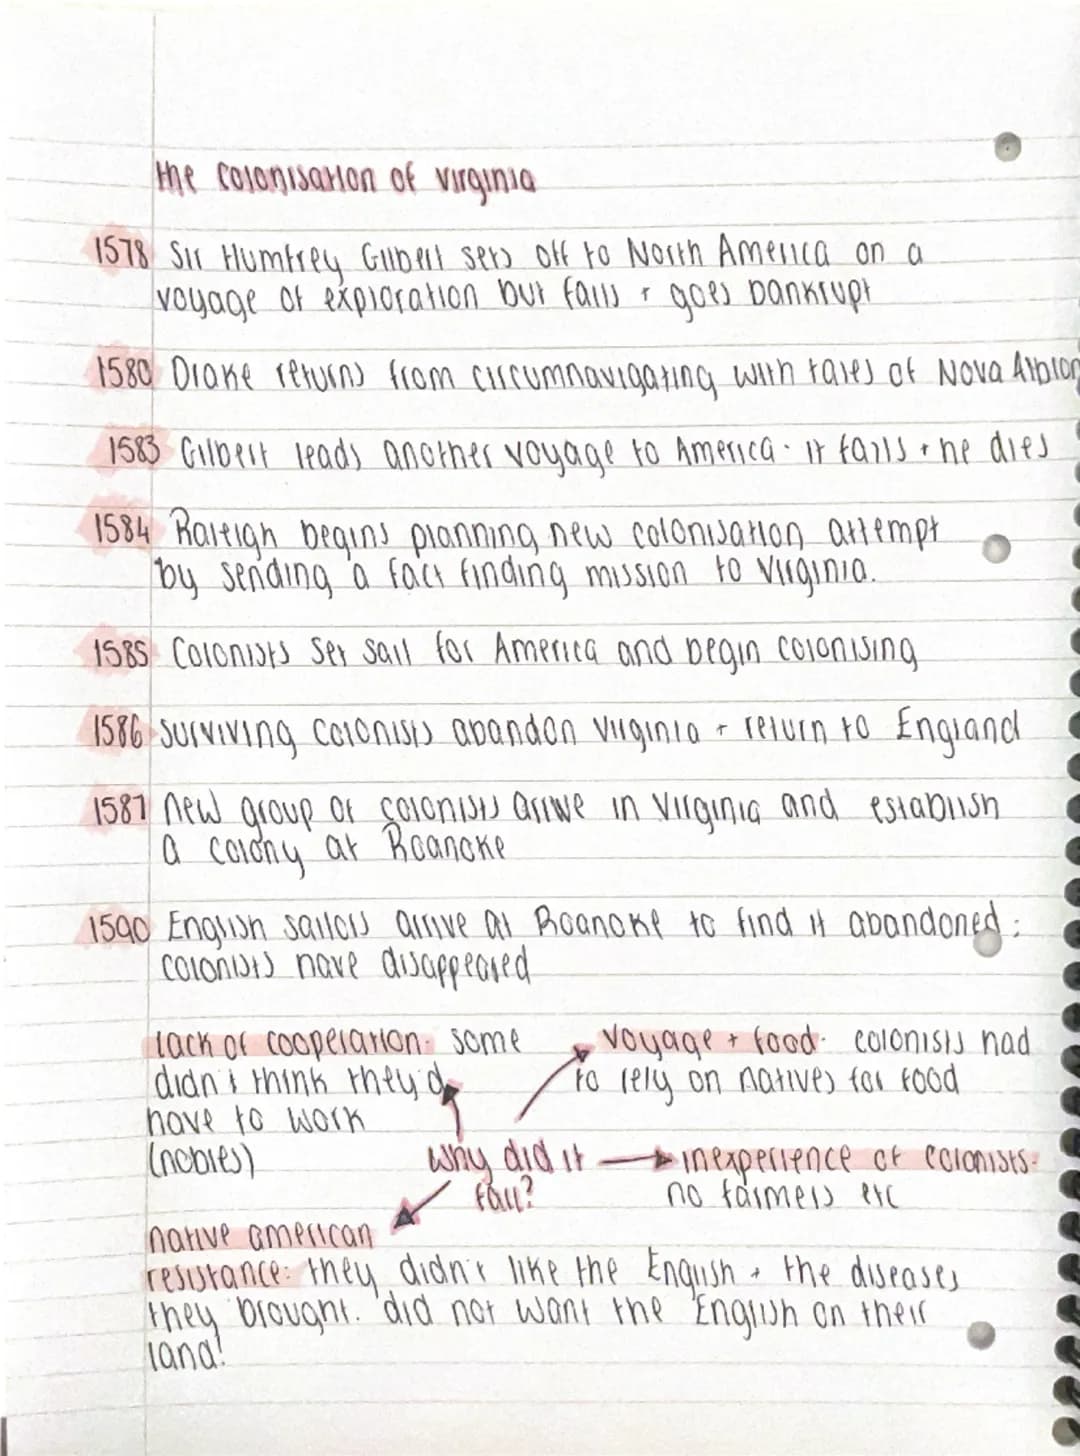 the colonisation of virginia
1578 Sir Humfrey Gilbert sets off to North America on a
voyage of exploration but fails + goes bankrupt
1580 Drake returns from circumnavigating with tales of Nova Albion
1583 Gilbert leads another voyage to America. it fails + he dies
1584 Raleigh begins planning new colonisation attempt
by sending a fact finding mission to Virginia.
1585 Colonists set sail for America and begin colonising
1586 surviving colonists abandon Virginia + return to England
1587 new group of colonists arrive in Virginia and establish
a colony at Roanoke
1590 English sailors arrive at Roanoke to find it abandoned:
colonists have disappeared
lack of cooperation: some
didn't think they'd
have to work
(nobles)
voyage + food: colonists had
to rely on natives for food
why did it
fail?
inexperience of colonists:
no farmers etc
native american
resistance: they didn't like the English + the diseases
they brought. did not want the English on their
land!